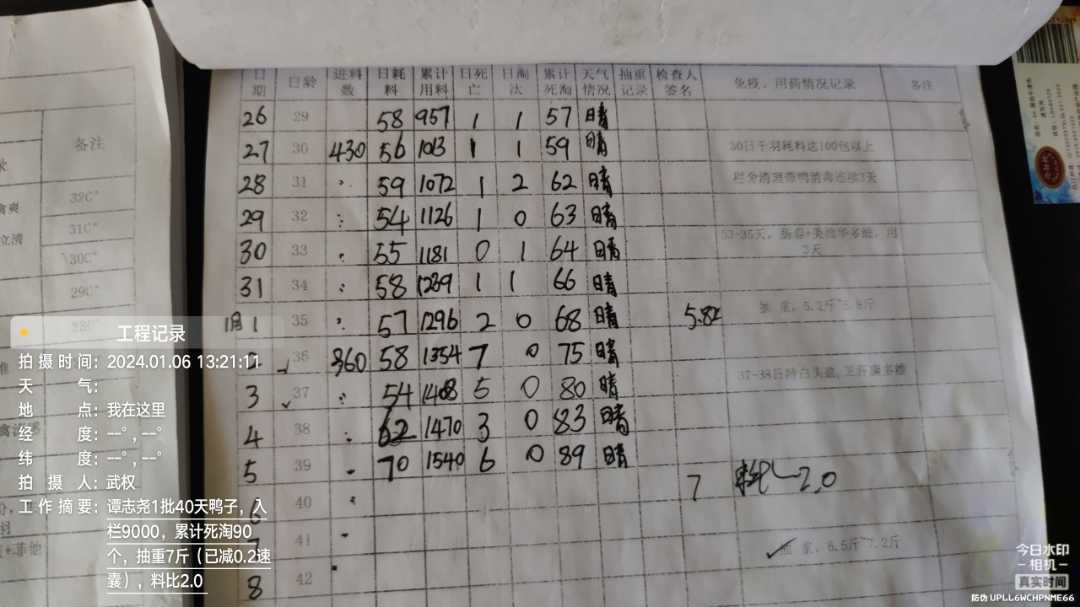 备注
32C°
31C°
30C°
29C°
28C°
日期 日龄 进料数 日耗料 累计用料 日死亡 日淘汰 累计死淘 天气情况 抽重记录 检查人签名 免疫、用药情况记录 备注
26 29 58 957 1 1 57 晴
27 30 430 56 1013 1 1 59 晴 30日千羽耗料达100包以上
28 31 59 1072 1 2 62 晴 栏舍清理带鸭消毒连续3天
29 32 54 1126 1 0 63 晴
30 33 55 1181 0 1 64 晴
31 34 58 1239 1 1 66 晴
1月1 35 57 1296 2 0 68 晴 5.8斤
36 360 58 1354 7 0 75 晴
3 37 54 1408 5 0 80 晴
4 38 62 1470 3 0 83 晴
5 39 70 1540 6 0 89 晴
6 40 7 料比2.0
41
8 42
工程记录
拍摄时间：2024.01.06 13:21:11
天气：
地点：我在这里
经度：--°, --°
纬度：--°, --°
拍摄人：武权
工作摘要：谭志尧1批40天鸭子，入
栏9000，累计死淘90
个，抽重7斤（已减0.2速
囊），料比2.0
今日水印
相机
真实时间
防伪 UPLL6WCHPNME66